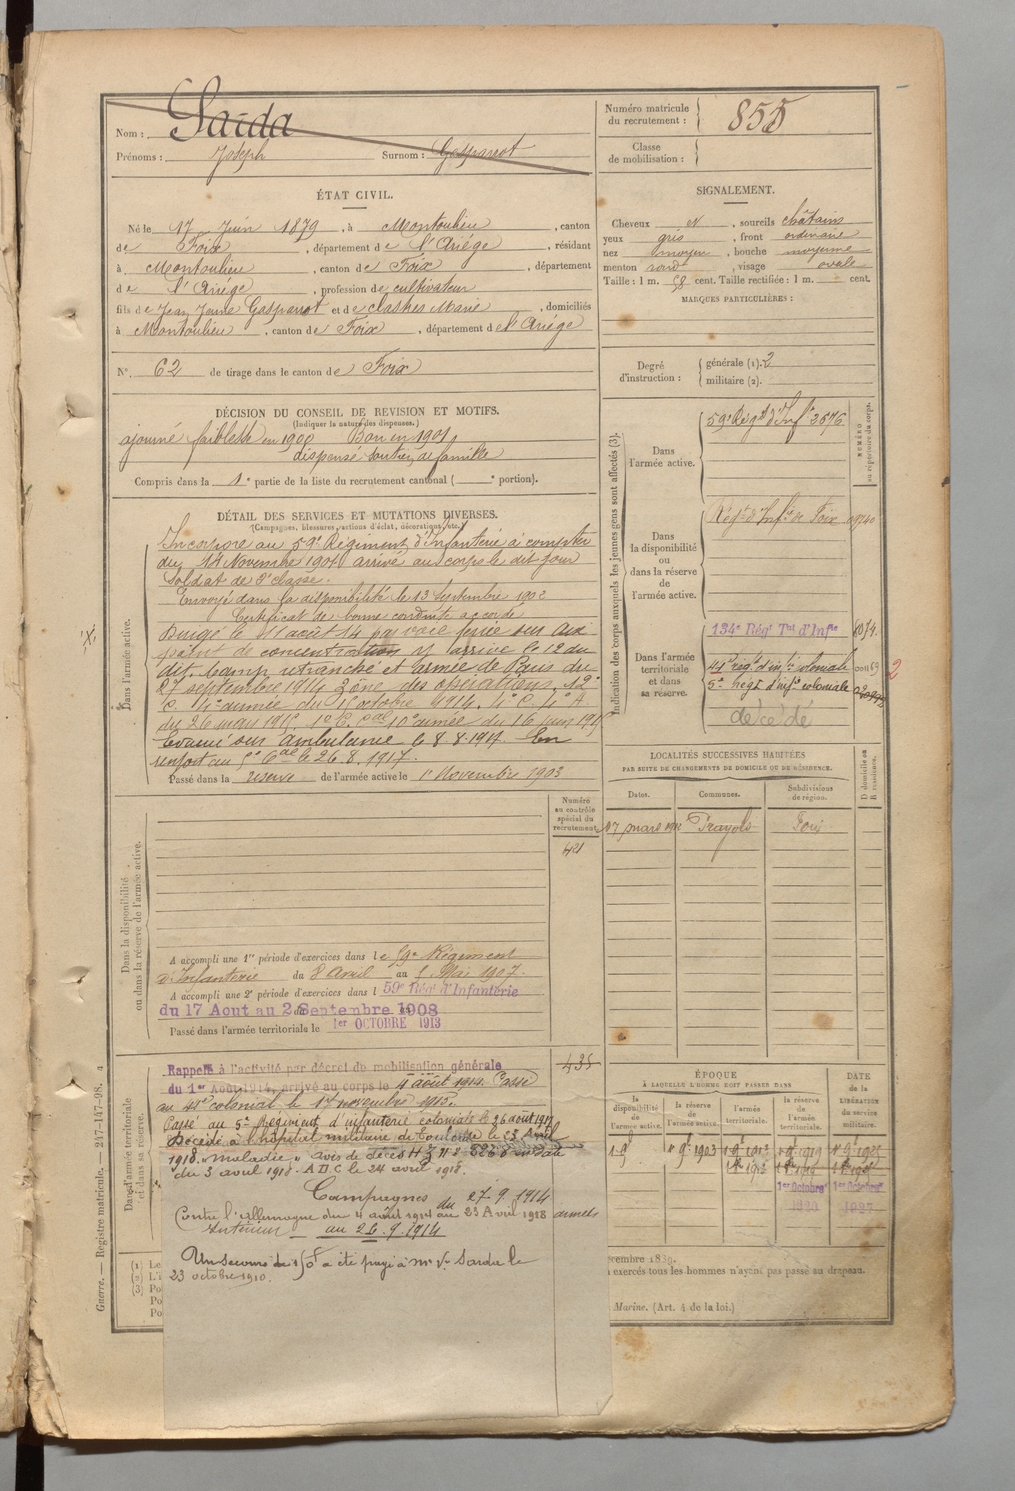 Nom : Sarda
Prénoms : Joseph Surnom : Gasparrot
Numéro matricule du recrutement : 855
Classe de mobilisation :
ÉTAT CIVIL.
Né le 17 Juin 1879, à Montoulieu, canton
de Foix, département de l'Ariége, résidant
à Montoulieu, canton de Foix, département
de l'Ariége, profession de cultivateur
fils de Jean Jeune Gasparrot et de Marie, domiciliés
à Montoulieu, canton de Foix, département de l'Ariége
N° 62 de tirage dans le canton de Foix
SIGNALEMENT.
Cheveux et, sourcils châtains
yeux gris, front ordinaire
nez moyen, bouche moyenne
menton rond, visage ovale
Taille : 1 m. 58 cent. Taille rectifiée : 1 m. cent.
MARQUES PARTICULIÈRES :
Degré d'instruction : générale (1). 2
militaire (2).
DÉCISION DU CONSEIL DE REVISION ET MOTIFS.
(Indiquer la nature des dispenses.)
ajourné faiblesse en 1900 Bon en 1901
dispensé soutien de famille
Compris dans la 1e partie de la liste du recrutement cantonal ( e portion).
DÉTAIL DES SERVICES ET MUTATIONS DIVERSES.
(Campagnes, blessures, actions d'éclat, décorations, etc.)
Dans l'armée active.
Incorporé au 59e Régiment d'Infanterie à compter
du 14 Novembre 1901 arrivé au corps le dit jour
Soldat de 2e classe.
Envoyé dans la disponibilité le 13 Septembre 1902
Certificat de bonne conduite accordé
Dirigé le 11 août 14 par voie ferrée sur
point de concentration y arrive le 12 du
dit. Camp retranché et armée de Paris du
27 septembre 1914 Zone des opérations. 12e
C. 4e armée du 1 octobre 1914. 4e C. 4e A.
du 26 mars 1915 1er C. Cal 10e armée du 16 juin 1915
Evacué sur ambulance le 8.8.1917. En
renfort au 5e Cal le 26.8.1917.
Passé dans la réserve de l'armée active le 1er Novembre 1903
Indication des corps auxquels les jeunes gens sont affectés (3).
NUMÉRO au répertoire du corps.
Dans l'armée active. 59e Régt d'Infie 3676
Dans la disponibilité ou dans la réserve de l'armée active. Régt d'Infie de Foix
Dans l'armée territoriale et dans sa réserve. 134e Régt Tal d'Infie
44e rég. d'infie coloniale
5e Régt d'infie coloniale
décédé
2
LOCALITÉS SUCCESSIVES HABITÉES
PAR SUITE DE CHANGEMENTS DE DOMICILE OU DE RÉSIDENCE.
D domicile ou R résidence.
Dates. Communes. Subdivisions de région.
17 mars Prayols Foix
Numéro au contrôle spécial du recrutement
421
Dans la disponibilité ou dans la réserve de l'armée active.
A accompli une 1re période d'exercices dans le 59e Régiment
d'Infanterie du 8 Avril au 1 Mai 1907.
A accompli une 2e période d'exercices dans l 59e Régt d'Infanterie
du 17 Aout au 2 Septembre 1908
Passé dans l'armée territoriale le 1er OCTOBRE 1913
Dans l'armée territoriale et dans sa réserve.
435
Rappelé à l'activité par décret de mobilisation générale
du 1er Août 1914, arrivé au corps le 4 août 1914. Passé
au 44e colonial le 17 novembre 1915.
Passé au 5e Régiment d'infanterie coloniale le 26 août 1917
Décédé à l'hôpital militaire de Toulouse le 23 Avril
1918. "maladie" avis de décès
du 3 avril 1918. A.D.C le 24 avril 1918.
Campagnes
Contre l'Allemagne du 4 août 1914 au 23 Avril 1918
du 27.9.1914
Intérieur au 26.9.1914
armées
Un secours de 150f a été payé à Mme Ve Sarda le
23 octobre
ÉPOQUE
À LAQUELLE L'HOMME DOIT PASSER DANS
la disponibilité de l'armée active. la réserve de l'armée active. l'armée territoriale. la réserve de l'armée territoriale. DATE de la LIBÉRATION du service militaire.
1 9bre 1903
1er Octobre 1er Octobre
1927
exercés tous les hommes n'ayant pas passé au drapeau.
Marine. (Art. 4 de la loi.)
Guerre. — Registre matricule. — 247-147-98.